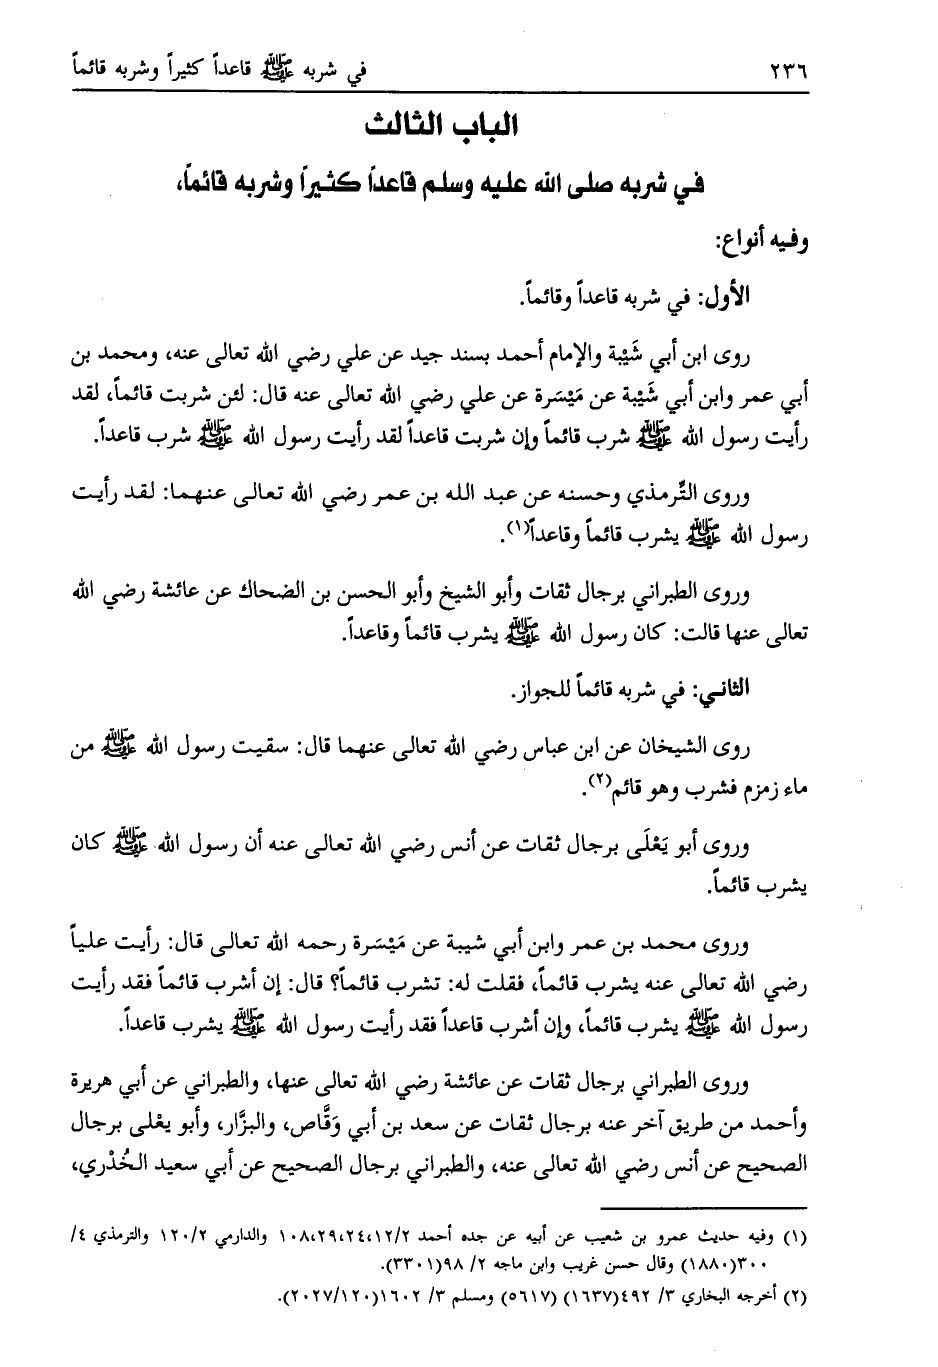 ٢٣٦ في شربه ﷺ قاعداً كثيراً وشربه قائماً
الباب الثالث
في شربه صلى الله عليه وسلم قاعداً كثيراً وشربه قائماً،
وفيه أنواع:
الأول: في شربه قاعداً وقائماً.
روى ابن أبي شَيْبة والإمام أحمد بسند جيد عن علي رضي الله تعالى عنه، ومحمد بن
أبي عمر وابن أبي شَيْبة عن مَيْسَرة عن علي رضي الله تعالى عنه قال: لئن شربت قائماً، لقد
رأيت رسول الله ﷺ شرب قائماً وإن شربت قاعداً لقد رأيت رسول الله ﷺ شرب قاعداً.
وروى التِّرمذي وحسنه عن عبد الله بن عمر رضي الله تعالى عنهما: لقد رأيت
رسول الله ﷺ يشرب قائماً وقاعداً(١).
وروى الطبراني برجال ثقات وأبو الشيخ وأبو الحسن بن الضحاك عن عائشة رضي الله
تعالى عنها قالت: كان رسول الله ﷺ يشرب قائماً وقاعداً.
الثاني: في شربه قائماً للجواز.
روى الشيخان عن ابن عباس رضي الله تعالى عنهما قال: سقيت رسول الله ﷺ من
ماء زمزم فشرب وهو قائم(٢).
وروى أبو يَعْلَى برجال ثقات عن أنس رضي الله تعالى عنه أن رسول الله ﷺ كان
يشرب قائماً.
وروى محمد بن عمر وابن أبي شيبة عن مَيْسَرة رحمه الله تعالى قال: رأيت علياً
رضي الله تعالى عنه يشرب قائماً، فقلت له: تشرب قائماً؟ قال: إن أشرب قائماً فقد رأيت
رسول الله ﷺ يشرب قائماً، وإن أشرب قاعداً فقد رأيت رسول الله ﷺ يشرب قاعداً.
وروى الطبراني برجال ثقات عن عائشة رضي الله تعالى عنها، والطبراني عن أبي هريرة
وأحمد من طريق آخر عنه برجال ثقات عن سعد بن أبي وَقَّاص، والبزَّار، وأبو يعْلى برجال
الصحيح عن أنس رضي الله تعالى عنه، والطبراني برجال الصحيح عن أبي سعيد الخُدْري،
(١) وفيه حديث عمرو بن شعيب عن أبيه عن جده أحمد ٢/١٢،٢٤،٢٩،١٠٨ والدارمي ٢/١٢٠ والترمذي ٤/
٣٠٠(١٨٨٠) وقال حسن غريب وابن ماجه ٢/ ٩٨(٣٣٠١).
(٢) أخرجه البخاري ٣/ ٤٩٢(١٦٣٧) (٥٦١٧) ومسلم ٣/ ١٦٠٢(٢٠٢٧/١٢٠).